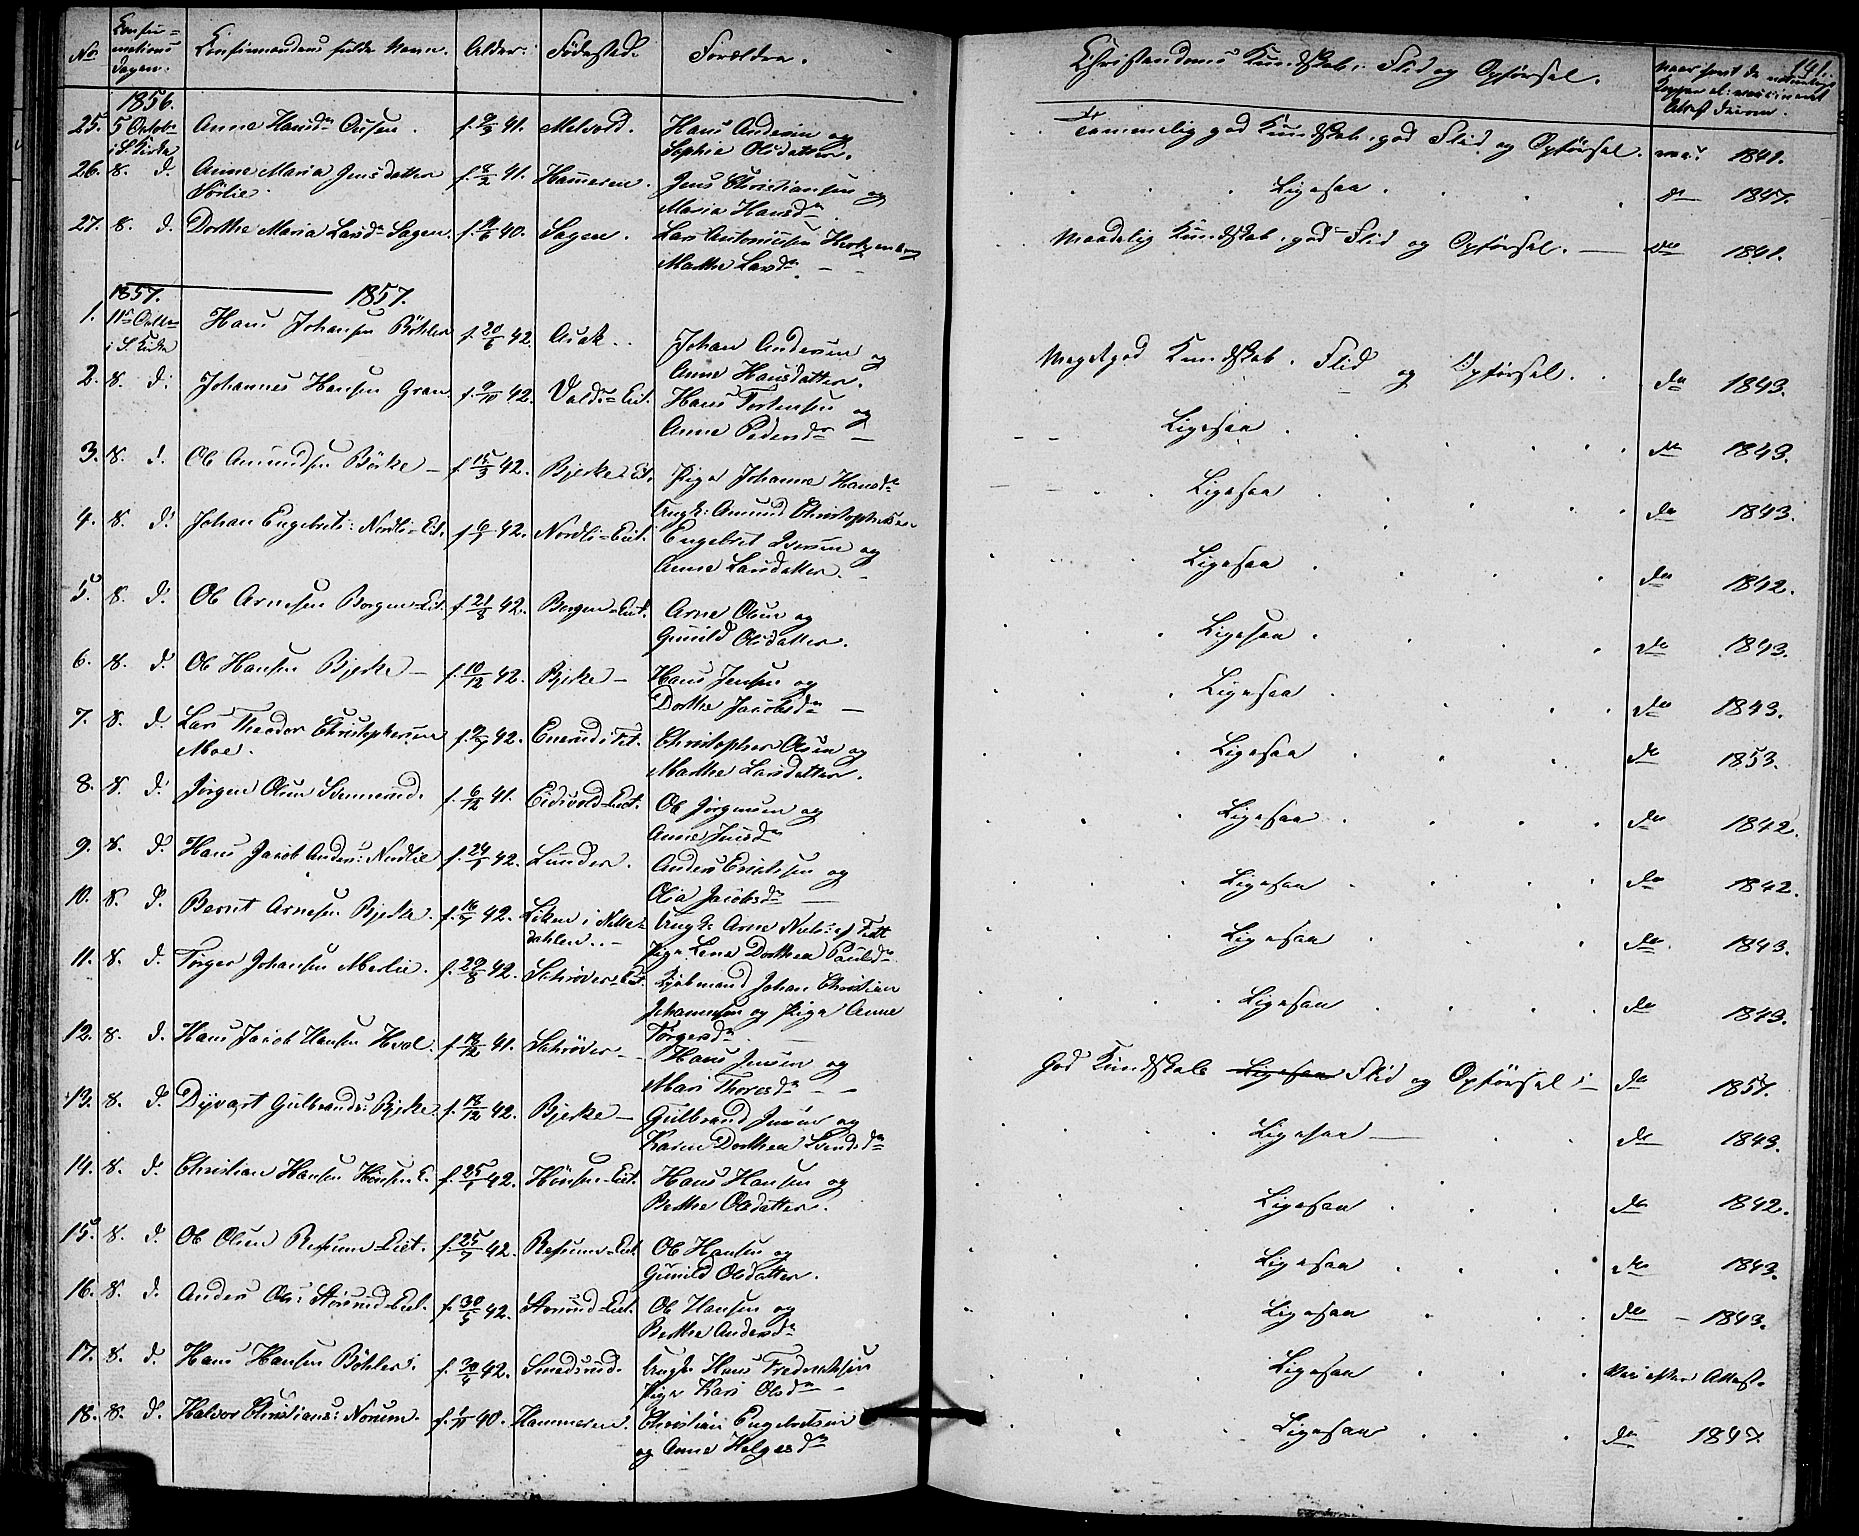 No. Confir= mations Dagen. Confirmandens fulde Navn. Alder. Fødested. Forældre. Christendoms Kundskab, Flid og Opførsel. 141.
1856.
25. 5 Octob. i S. Kirke Anne Hansdr. f. 41. Melvold. Hans Andersen og Sophie Olsdatter. Temmelig god Kundskab, god Flid og Opførsel. vac: 1841.
26. 8. d. Anne Maria Jensdatter Sørlie. f. 8/2 41. Hammeren. Jens Christiansen og Maria Hansdr. Ligesaa do 1847.
27. 8. d. Dorthe Maria Larsdr. Sagen. f. 9/6 40. Sagen. Lars Antonisen og Marthe Larsdr. Maadelig Kundskab, god Flid og Opførsel. do 1841.
1857. 1857.
1. 11te Octbr. i S. Kirke Hans Johansen Bøhler f. 20/6 42. Aas Johan Andersen og Anne Hansdatter. Megetgod Kundskab, Flid og Opførsel. do 1843.
2. 8. d. Johannes Hansen Gran. f. 9/10 42. Hans Torstensen og Anne Pedersdr. Ligesaa do 1843.
3. 8. d. Ole Amundsen Bjerke f. 15/3 42. Bjerke-Eie. Pige Johanne Hansdr. Ungk: Amund Christophersen Ligesaa do 1843.
4. 8. d. Johan Engebrets: Nordli-Eie. f. 42. Nordli-Eiet. Engebret Iversen og Anne Larsdatter. Ligesaa do 1842.
5. 8. d. Ole Arnesen Borgen-Eie. f. 21/8 42. Borgen-Eiet. Arne Olsen og Gunild Olsdatter. Ligesaa do 1843.
6. 8. d. Ole Hansen Bjerke f. 10/12 42. Bjerke Hans Jensen og Dorthe Jacobsdr. Ligesaa do 1843.
7. 8. d. Lars Theodor Christophersen Moe. f. 42. Christopher Olsen og Marthe Larsdatter. Ligesaa do 1853.
8. 8. d. Jørgen Olsen Svennerud. f. 6/12 41. Eidsvold-Eiet. Ole Jørgensen og Anne Jensdr. Ligesaa do 1842.
9. 8. d. Hans Jacob Anders: Nordlie f. 24/1 42. Lunder. Anders Erichsen og Olia Jacobsdr. Ligesaa do 1842.
10. 8. d. Bernt Arnesen Bjerke. f. 16/7 42. Løken i Nitte-dahlen. Ungk: Arne Niels: af Fedt Pige Lene Dorthea Poulsdr. Ligesaa do 1843.
11. 8. d. Torger Johansen Moelie. f. 29/8 42. Schrøver-Eie. Kjøbmand Johan Christian Johannesen og Pige Anne Torgersdr. Ligesaa do 1843.
12. 8. d. Hans Jacob Hansen Hval. f. 12 41. Schrøver Hans Jensen og Mari Thoresdr. God Kundskab Ligesaa Flid og Opførsel. do 1857.
13. 8. d. Dyvart Gulbrands: Bjerke f. 18/12 42. Bjerke Gulbrand Jensen og Karen Dorthea Svendsdr. Ligesaa do 1843.
14. 8. d. Christian Hansen Hønsen E. f. 25/1 42. Hønsen-Eiet. Hans Hansen og Berthe Olsdatter. Ligesaa do 1842.
15. 8. d. Ole Olsen Røsum-Eiet. f. 25/7 42. Røsum-Eiet. Ole Hansen og Gunild Olsdatter. Ligesaa do 1843.
16. 8. d. Anders Ols: Størsrud-Eiet. f. 30/5 42. Størsrud-Eiet. Ole Hansen og Berthe Andersdr. Ligesaa do 1843.
17. 8. d. Hans Hansen Bøhler. f. 30/4 42. Smedsrud. Ungk. Hans Fredriksen Pige Kari Olsdr. Ligesaa Vac: efter Attest.
18. 8. d. Halvor Christians: Norum. f. 40. Hammeren. Christian Engebretsen og Anne Helgesdr. Ligesaa do 1847.